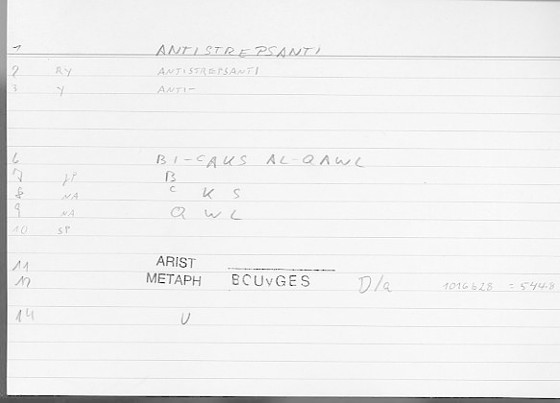 1 ANTISTREPSANTI
2 RY ANTISTREPSANTI
3 Y ANTI-
6 BI-CAKS AL-QAWL
7 B
8 NA C K S
9 NA Q W L
10 SP
11 ARIST
METAPH BCUvGES D/a 1016628 = 544.8
14 U